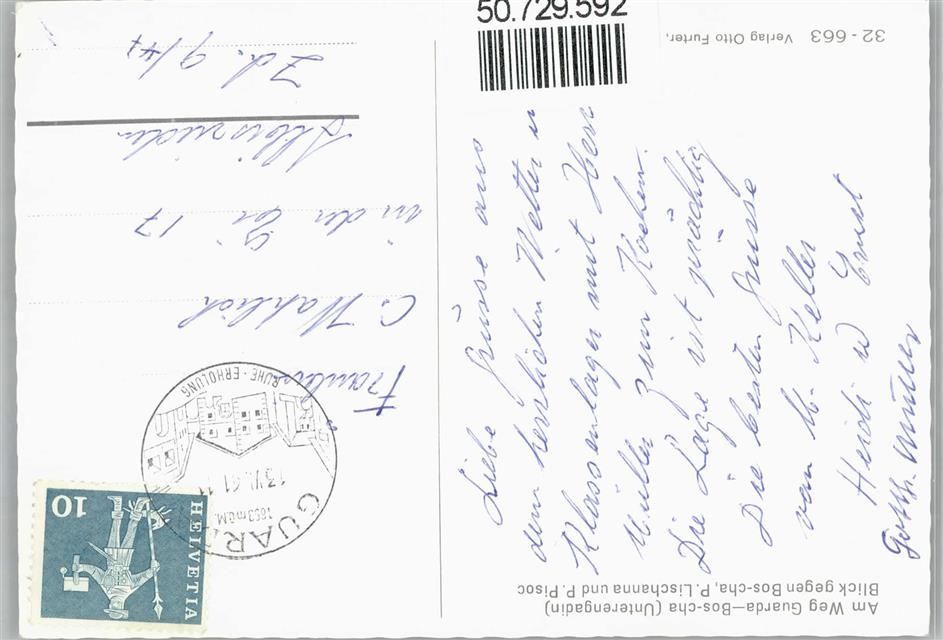 50.729.592
32 - 663 Verlag Otto Furter,
Liebe Grüsse aus
dem herrlichen Wetter u
Klassenlager mit Herr
Müller zum Kochen.
Die Lage ist prächtig
Die besten Grüsse
von M. Keller
Heidi u Ernst
Gotth. Müller
Am Weg Guarda—Bos-cha (Unterengadin)
Blick gegen Bos-cha, P. Lischanna und P. Pisoc
HELVETIA
10
GUARDA
1653 m ü.M.
13.VI.61.11
RUHE - ERHOLUNG
Fräulein
C. Wahlich
in der Ey 17
Albisrieden
Zch. 9/47